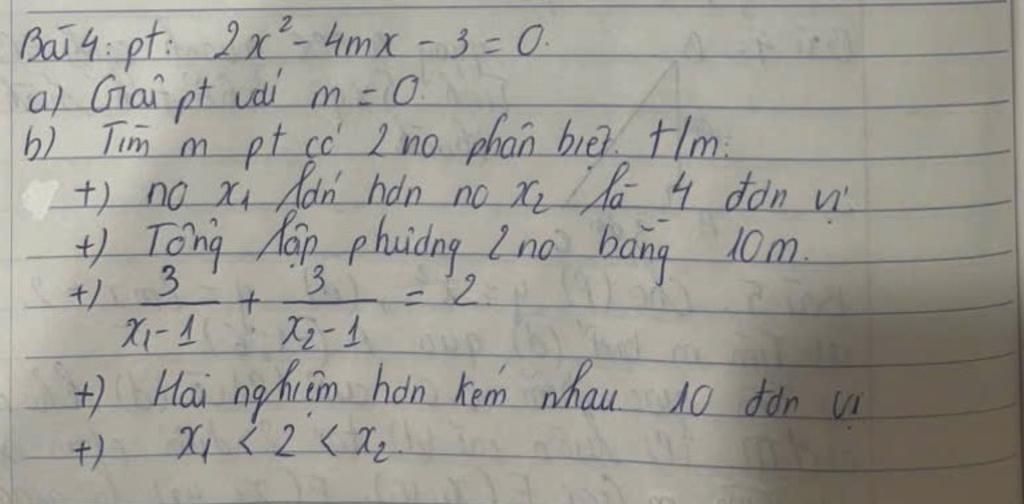 Bài 4: pt: 2x² - 4mx - 3 = 0.
a) Giải pt với m = 0.
b) Tìm m pt có 2 no phân biệt t/m:
+) no x₁ lớn hơn no x₂ là 4 đơn vị
+) Tổng lập phương 2 no bằng 10m.
+) 3/(x₁ - 1) + 3/(x₂ - 1) = 2
+) Hai nghiệm hơn kém nhau 10 đơn vị
+) x₁ < 2 < x₂.